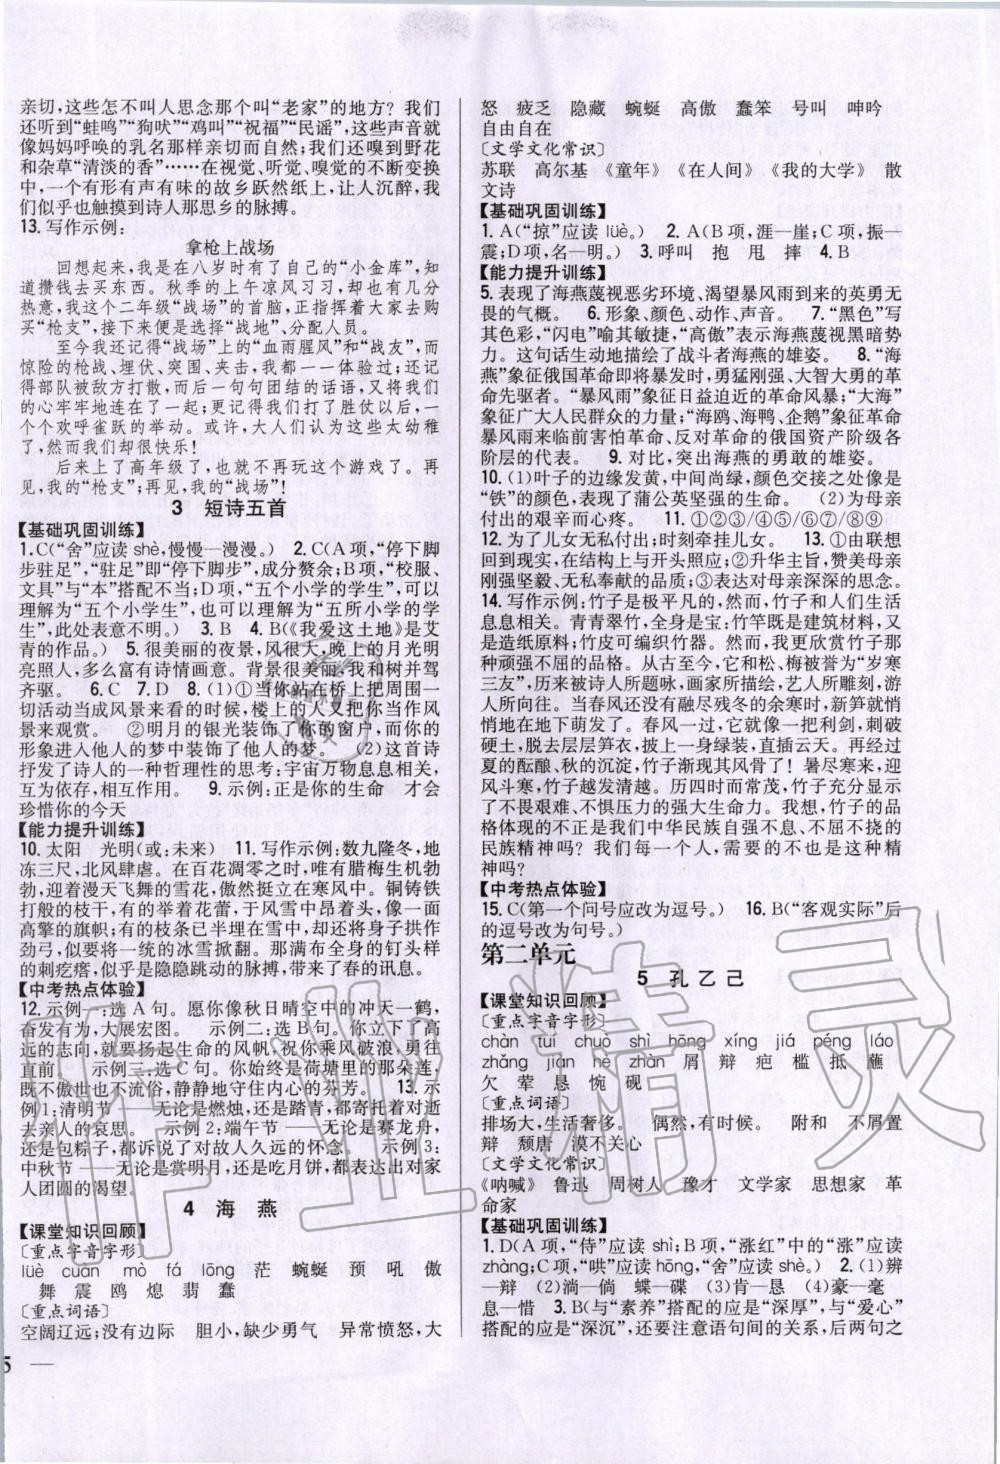 亲切,这些怎不叫人思念那个叫“老家”的地方？我们
还听到“蛙鸣”“狗吠”“鸡叫”“祝福”“民谣”,这些声音就
像妈妈呼唤的乳名那样亲切而自然;我们还嗅到野花
和杂草“清淡的香”……在视觉、听觉、嗅觉的不断变换
中,一个有形有声有味的故乡跃然纸上,让人沉醉,我
们似乎也触摸到诗人那思乡的脉搏。
13. 写作示例:
拿枪上战场
回想起来,我是在八岁时有了自己的“小金库”,知
道攒钱去买东西。秋季的上午凉风习习,却也有几分
热意,我这个二年级“战场”的首脑,正指挥着大家去购
买“枪支”,接下来便是选择“战地”、分配人员。
至今我还记得“战场”上的“血雨腥风”和“战友”,而
惊险的枪战、埋伏、突围、夹击,我都一一体验过;还记
得部队被敌方打散,而后一句句团结的话语,又将我们
的心牢牢地连在了一起;更记得我们打了胜仗以后,一
个个欢呼雀跃的举动。或许,大人们认为这些太幼稚
了,然而我们却很快乐!
后来上了高年级了,也就不再玩这个游戏了。再
见,我的“枪支”;再见,我的“战场”!
3 短诗五首
【基础巩固训练】
1. C(“舍”应读 shè,慢慢—漫漫。) 2. C(A 项,“停下脚
步驻足”,“驻足”即“停下脚步”,成分赘余;B项,“校服、
文具”与“本”搭配不当;D 项,“五个小学的学生”,可以
理解为“五个小学生”,也可以理解为“五所小学的学
生”,此处表意不明。) 3. B 4. B(《我爱这土地》是艾
青的作品。) 5. 很美丽的夜景,风很大,晚上的月光明
亮照人,多么富有诗情画意。背景很美丽,我和树并驾
齐驱。 6. C 7. D 8. (1)①当你站在桥上把周围一
切活动当成风景来看的时候,楼上的人又把你当作风
景来观赏。 ②明月的银光装饰了你的窗户,而你的
形象进入他人的梦中装饰了他人的梦。 (2)这首诗
抒发了诗人的一种哲理性的思考:宇宙万物息息相关,
互为依存,相互作用。 9. 示例:正是你的生命 才会
珍惜你的今天
【能力提升训练】
10. 太阳 光明(或:未来) 11. 写作示例:数九隆冬,地
冻三尺,北风肆虐。在百花凋零之时,唯有腊梅生机勃
勃,迎着漫天飞舞的雪花,傲然挺立在寒风中。铜铸铁
打般的枝干,有的举着花蕾,于风雪中昂着头,像一面
高擎的旗帜;有的枝条已半埋在雪中,却还将身子拱作
劲弓,似要将一统的冰雪掀翻。那满布全身的钉头样
的刺疙瘩,似乎是隐隐跳动的脉搏,带来了春的讯息。
【中考热点体验】
12. 示例一:选 A 句。愿你像秋日晴空中的冲天一鹤,
奋发有为,大展宏图。 示例二:选 B 句。你立下了高
远的志向,就要扬起生命的风帆,祝你乘风破浪,勇往
直前。 示例三:选 C 句。你始终是荷塘里的那朵莲,
既不傲世也不流俗,静静地守住内心的芬芳。 13. 示
例 1:清明节——无论是燃烛,还是踏青,都寄托着对逝
去亲人的哀思。 示例 2:端午节——无论是赛龙舟,
还是包粽子,都诉说了对故人久远的怀念。 示例 3:
中秋节——无论是赏明月,还是吃月饼,都表达出对家
人团圆的渴望。
4 海燕
【课堂知识回顾】
〔重点字音字形〕
lüè cuān mò fá lōng 茫 蜿蜒 预 吼 傲
舞 震 鸥 熄 翡 蠢
〔重点词语〕
空阔辽远;没有边际 胆小,缺少勇气 异常愤怒,大
怒 疲乏 隐藏 蜿蜒 高傲 蠢笨 号叫 呻吟
自由自在
〔文学文化常识〕
苏联 高尔基 《童年》《在人间》《我的大学》 散
文诗
【基础巩固训练】
1. A(“掠”应读 lüè。) 2. A(B 项,涯—崖;C 项,振—
震;D 项,名—明。) 3. 呼叫 抱 甩 摔 4. B
【能力提升训练】
5. 表现了海燕蔑视恶劣环境、渴望暴风雨到来的英勇无
畏的气概。 6. 形象、颜色、动作、声音。 7. “黑色”写
其色彩,“闪电”喻其敏捷,“高傲”表示海燕蔑视黑暗势
力。这句话生动地描绘了战斗者海燕的雄姿。 8. “海
燕”象征俄国革命即将暴发时,勇猛刚强、大智大勇的革
命先驱者。“暴风雨”象征日益迫近的革命风暴;“大海”
象征广大人民群众的力量;“海鸥、海鸭、企鹅”象征革命
暴风雨来临前害怕革命、反对革命的俄国资产阶级各
阶层的代表。 9. 对比,突出海燕的勇敢的雄姿。
10. (1)叶子的边缘发黄,中间尚绿,颜色交接之处像是
“铁”的颜色,表现了蒲公英坚强的生命。 (2)为母亲
付出的艰辛而心疼。 11. ①②③/④⑤/⑥⑦/⑧⑨
12. 为了儿女无私付出;时刻牵挂儿女。 13. ①由联想
回到现实,在结构上与开头照应;②升华主旨,赞美母亲
刚强坚毅、无私奉献的品质;③表达对母亲深深的思念。
14. 写作示例:竹子是极平凡的,然而,竹子和人们生活
息息相关。青青翠竹,全身是宝:竹竿既是建筑材料,又
是造纸原料;竹皮可编织竹器。然而,我更欣赏竹子那
种顽强不屈的品格。从古至今,它和松、梅被誉为“岁寒
三友”,历来被诗人所题咏,画家所描绘,艺人所雕刻,游
人所向往。当春风还没有融尽残冬的余寒时,新笋就悄
悄地在地下萌发了。春风一过,它就像一把利剑,刺破
硬土,脱去层层笋衣,披上一身绿装,直插云天。再经过
夏的酝酿、秋的沉淀,竹子渐现其风骨了! 暑尽寒来,迎
风斗寒,竹子愈发显得挺拔。历四时而常茂,竹子充分显
示了不畏艰难、不惧压力的强大生命力。我想,竹子的品
格体现的不正是我们中华民族自强不息、不屈不挠的
民族精神吗? 我们每一个人,需要的不也是这种精
神吗?
【中考热点体验】
15. C(第一个问号应改为逗号。) 16. B(“客观实际”后
的逗号改为句号。)
第二单元
5 孔乙己
【课堂知识回顾】
〔重点字音字形〕
chàn tuí chuò shì hōng xíng jiá péng láo
zhǎng jiān hè zhàn 屑 辩 疤 槛 抵 蘸
欠 荤 恳 惋 砚
〔重点词语〕
排场大,生活奢侈。 偶然,有时候。 附和 不屑置
辩 颓唐 漠不关心
〔文学文化常识〕
《呐喊》 鲁迅 周树人 豫才 文学家 思想家 革
命家
【基础巩固训练】
1. D(A 项,“侍”应读 shì;B 项,“涨红”中的“涨”应读
zhàng;C 项,“哄”应读 hōng,“舍”应读 shè。) 2. (1)辨
—辩 (2)淌—倘 蝶—碟 (3)肯—恳 (4)豪—毫
息—惜 3. B(与“素养”搭配的应是“深厚”,与“爱心”
搭配的应是“深沉”,还要注意语句间的关系,后两句之
5 —
作业精灵